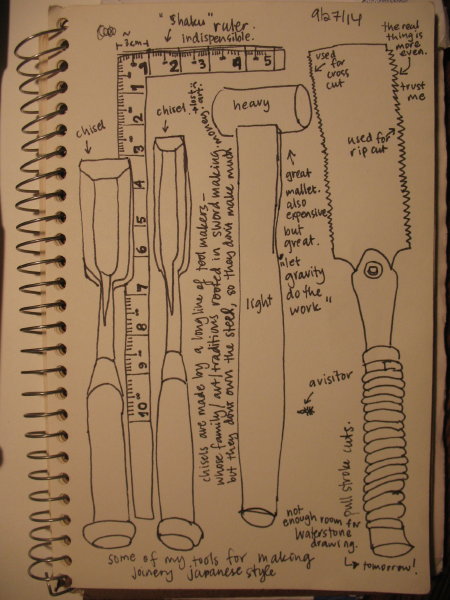 "Shaku" ruler.
indispensible.
9/27/14
~
3cm
1 2 3 4 5
1
2
3
4
5
6
7
8
9
10
chisel
chisel
heavy
light
great
mallet.
also
expensive
but
great.
"let
gravity
do the
work"
a visitor
used
for
cross
cut
used for
rip cut
the real
thing is
more
even.
trust
me
pull stroke cuts.
chisels are made by a long line of tool makers -
whose family/art/traditions rooted in sword making
but they don't own the steel, so they don't make much
money.
+ lost is
art.
not
enough room for
Waterstone
drawing.
↳ tomorrow!
some of my tools for making
joinery japanese style